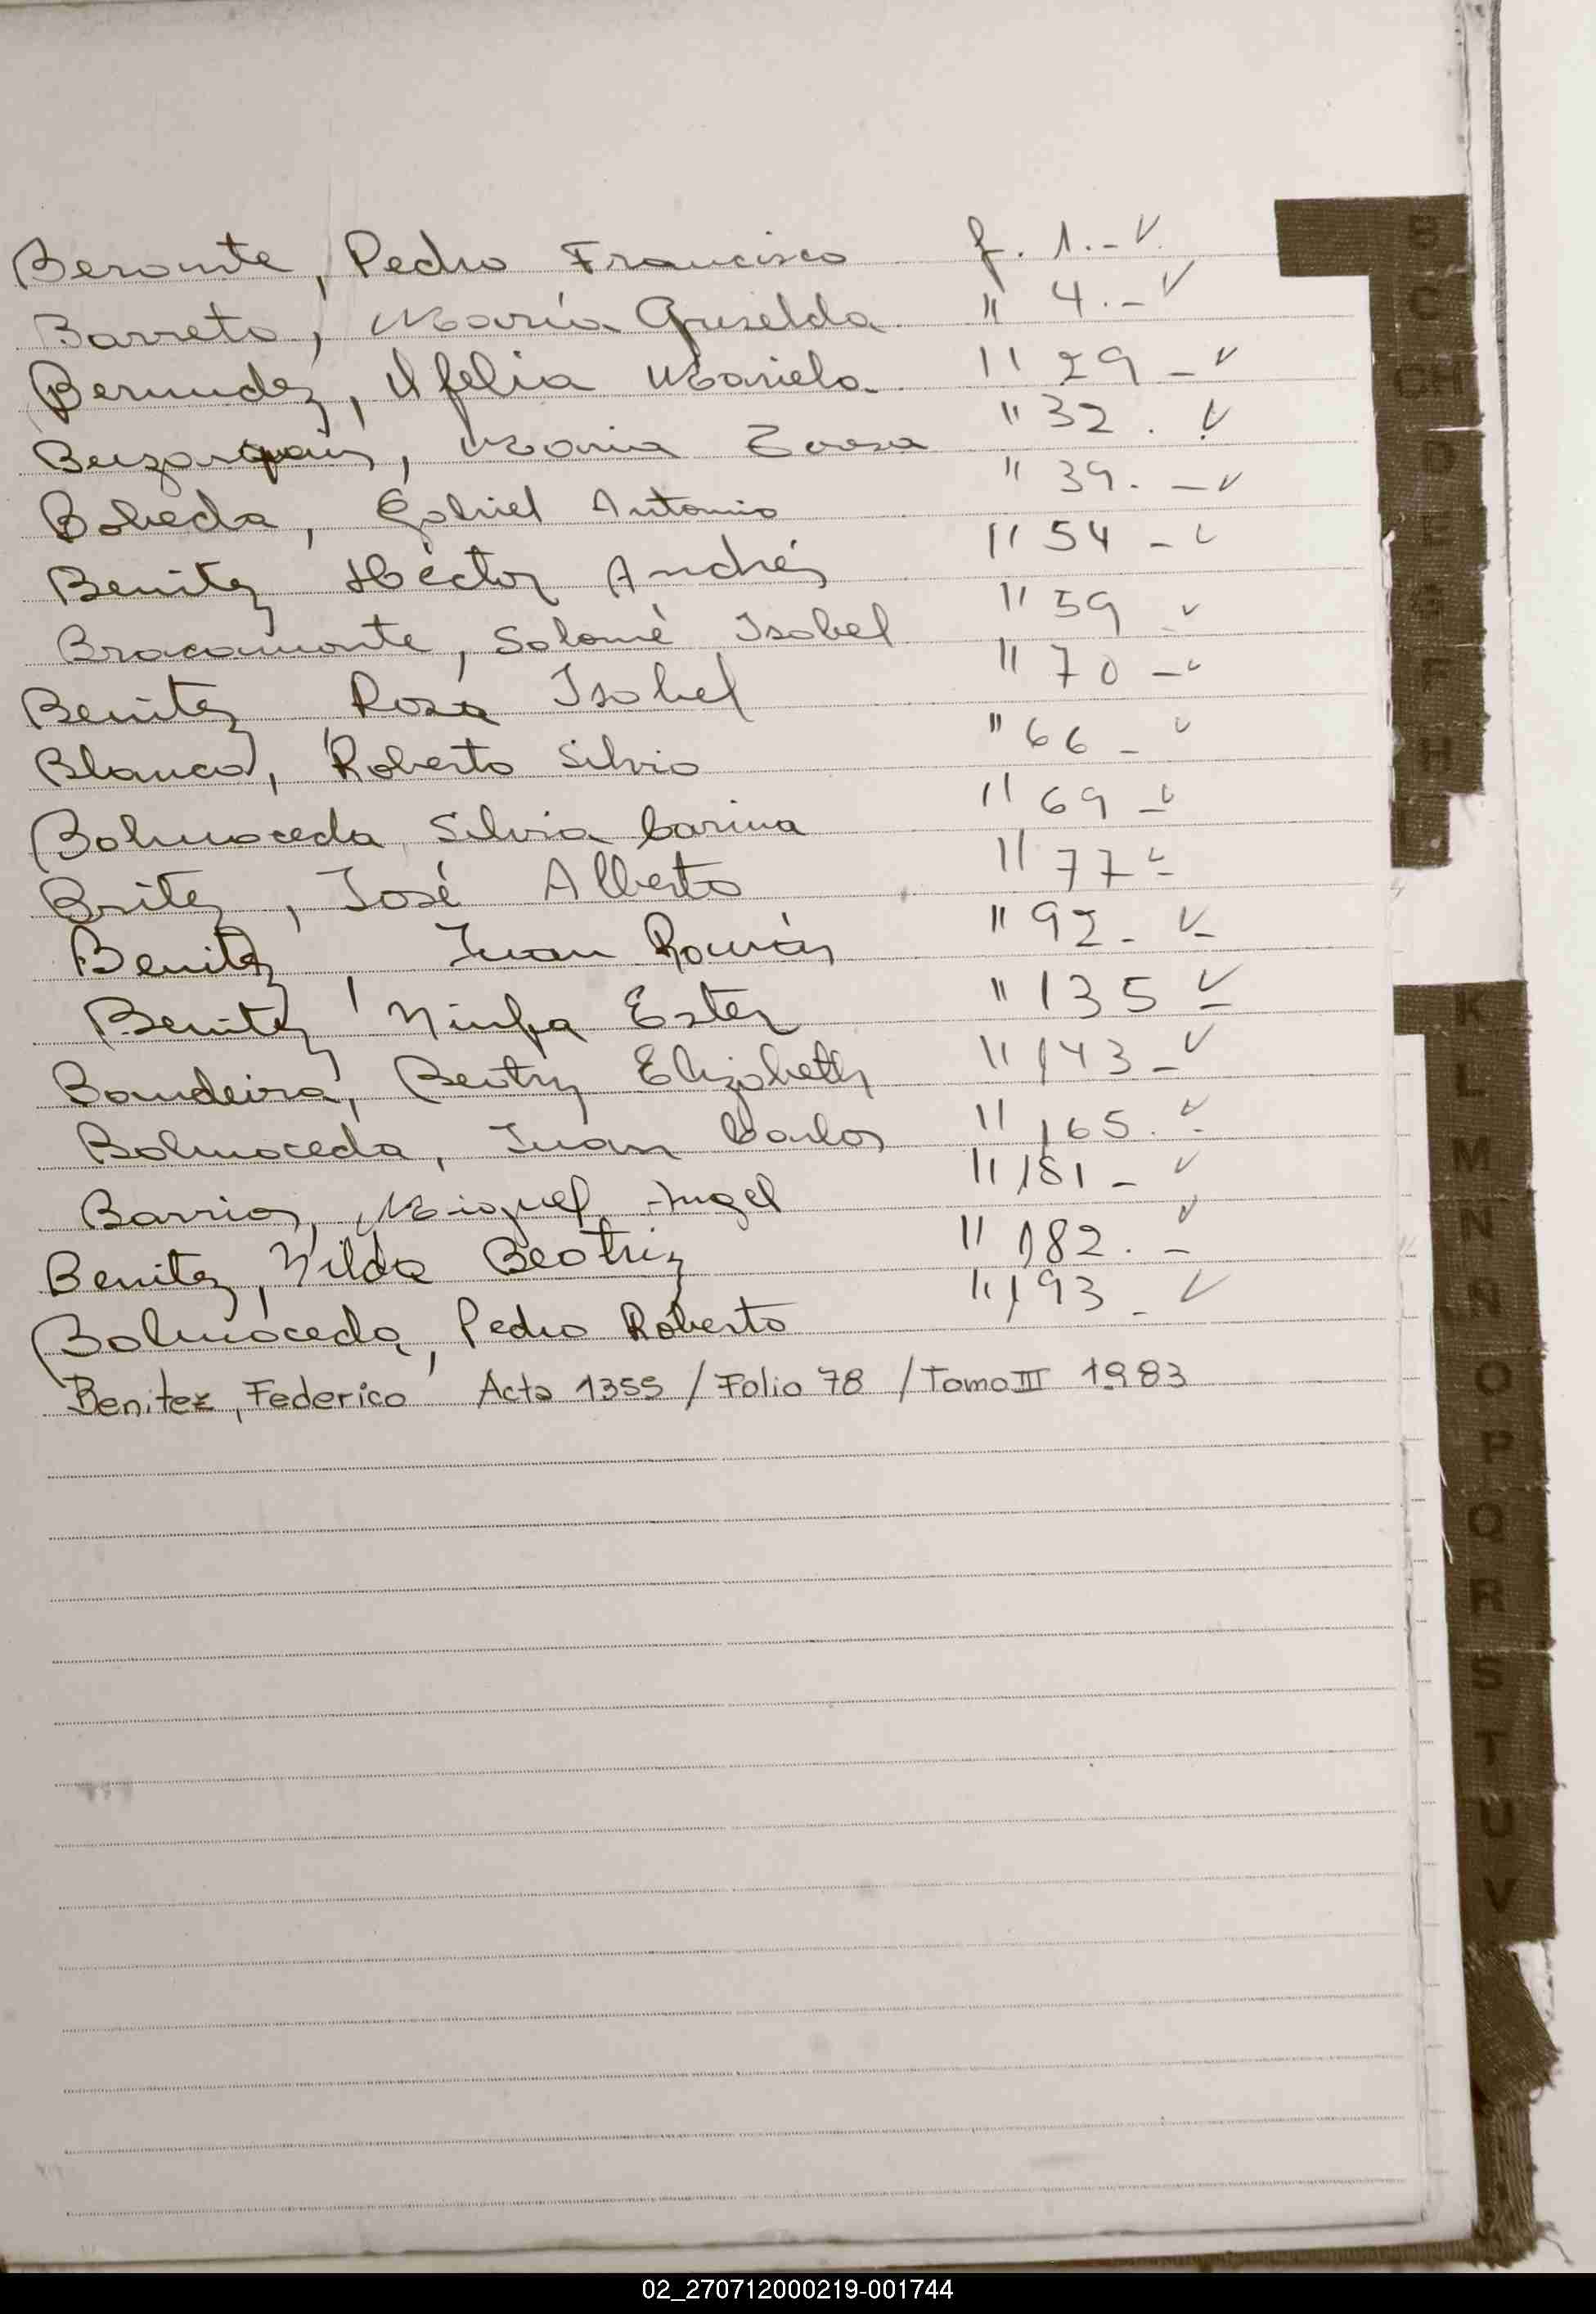 Beronte, Pedro Francisco f. 1.- v.
Barreto, María Griselda " 4.- v
Bermudez, Ofelia Mariela " 29 - v
María " 32. v
Bobeda, Gabriel Antonio " 39. - v
Benitez Héctor Andrés " 54 - v
Bracamonte, Salomé Isabel " 59 - v
Benitez Rosa Isabel " 70 - v
Blanco, Roberto Silvio " 66 - v
Balmaceda Silvia Carina " 69 - v
Britez, José Alberto " 77 - v
Benitez, Juan Román " 92 - v
Benitez, Ninfa Ester " 135 v
Bandeira, Beatriz Elizabeth " 143 - v
Balmaceda, Juan Carlos " 165. v
Barrios, Miguel Angel " 181 - v
Benitez, Nilda Beatriz " 182. - v
Balmaceda, Pedro Roberto " 193 - v
Benitez, Federico Acta 1355 / Folio 78 / Tomo III 1983
B
C
CH
D
E
F
H
K
L
M
N
Ñ
O
P
Q
R
S
T
U
V
02_270712000219-001744